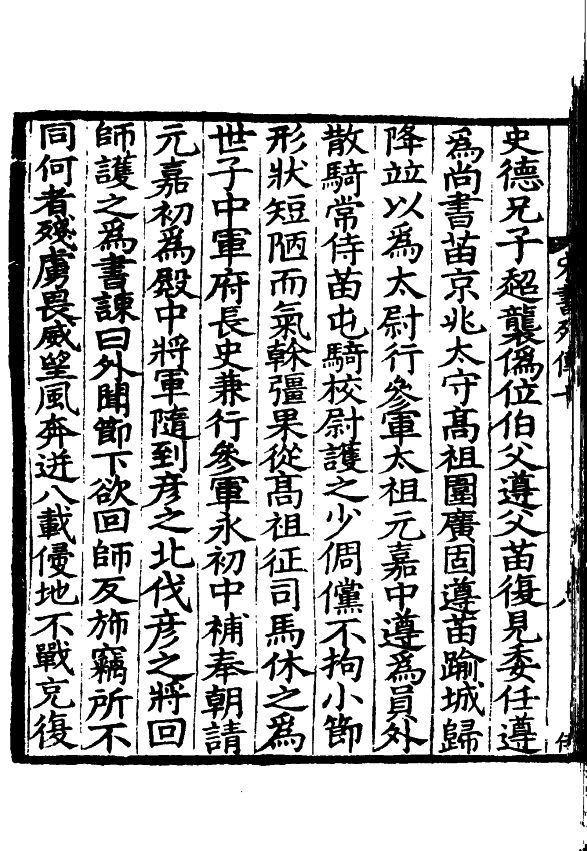 史德兄子超襲僞位伯父遵父苗復見委任遵
爲尚書苗京兆太守髙祖圍廣固遵苗踰城歸
降竝以爲太尉行參軍太祖元嘉中遵爲員外
散騎常侍苗屯騎校尉護之少倜儻不拘小節
形狀短陋而氣榦彊果從髙祖征司馬休之爲
世子中軍府長史兼行參軍永初中補奉朝請
元嘉初爲殿中將軍隨到彥之北伐彥之將回
師護之爲書諫曰外聞節下欲回師反斾竊所不
同何者殘虜畏威望風奔迸八載侵地不戰克復